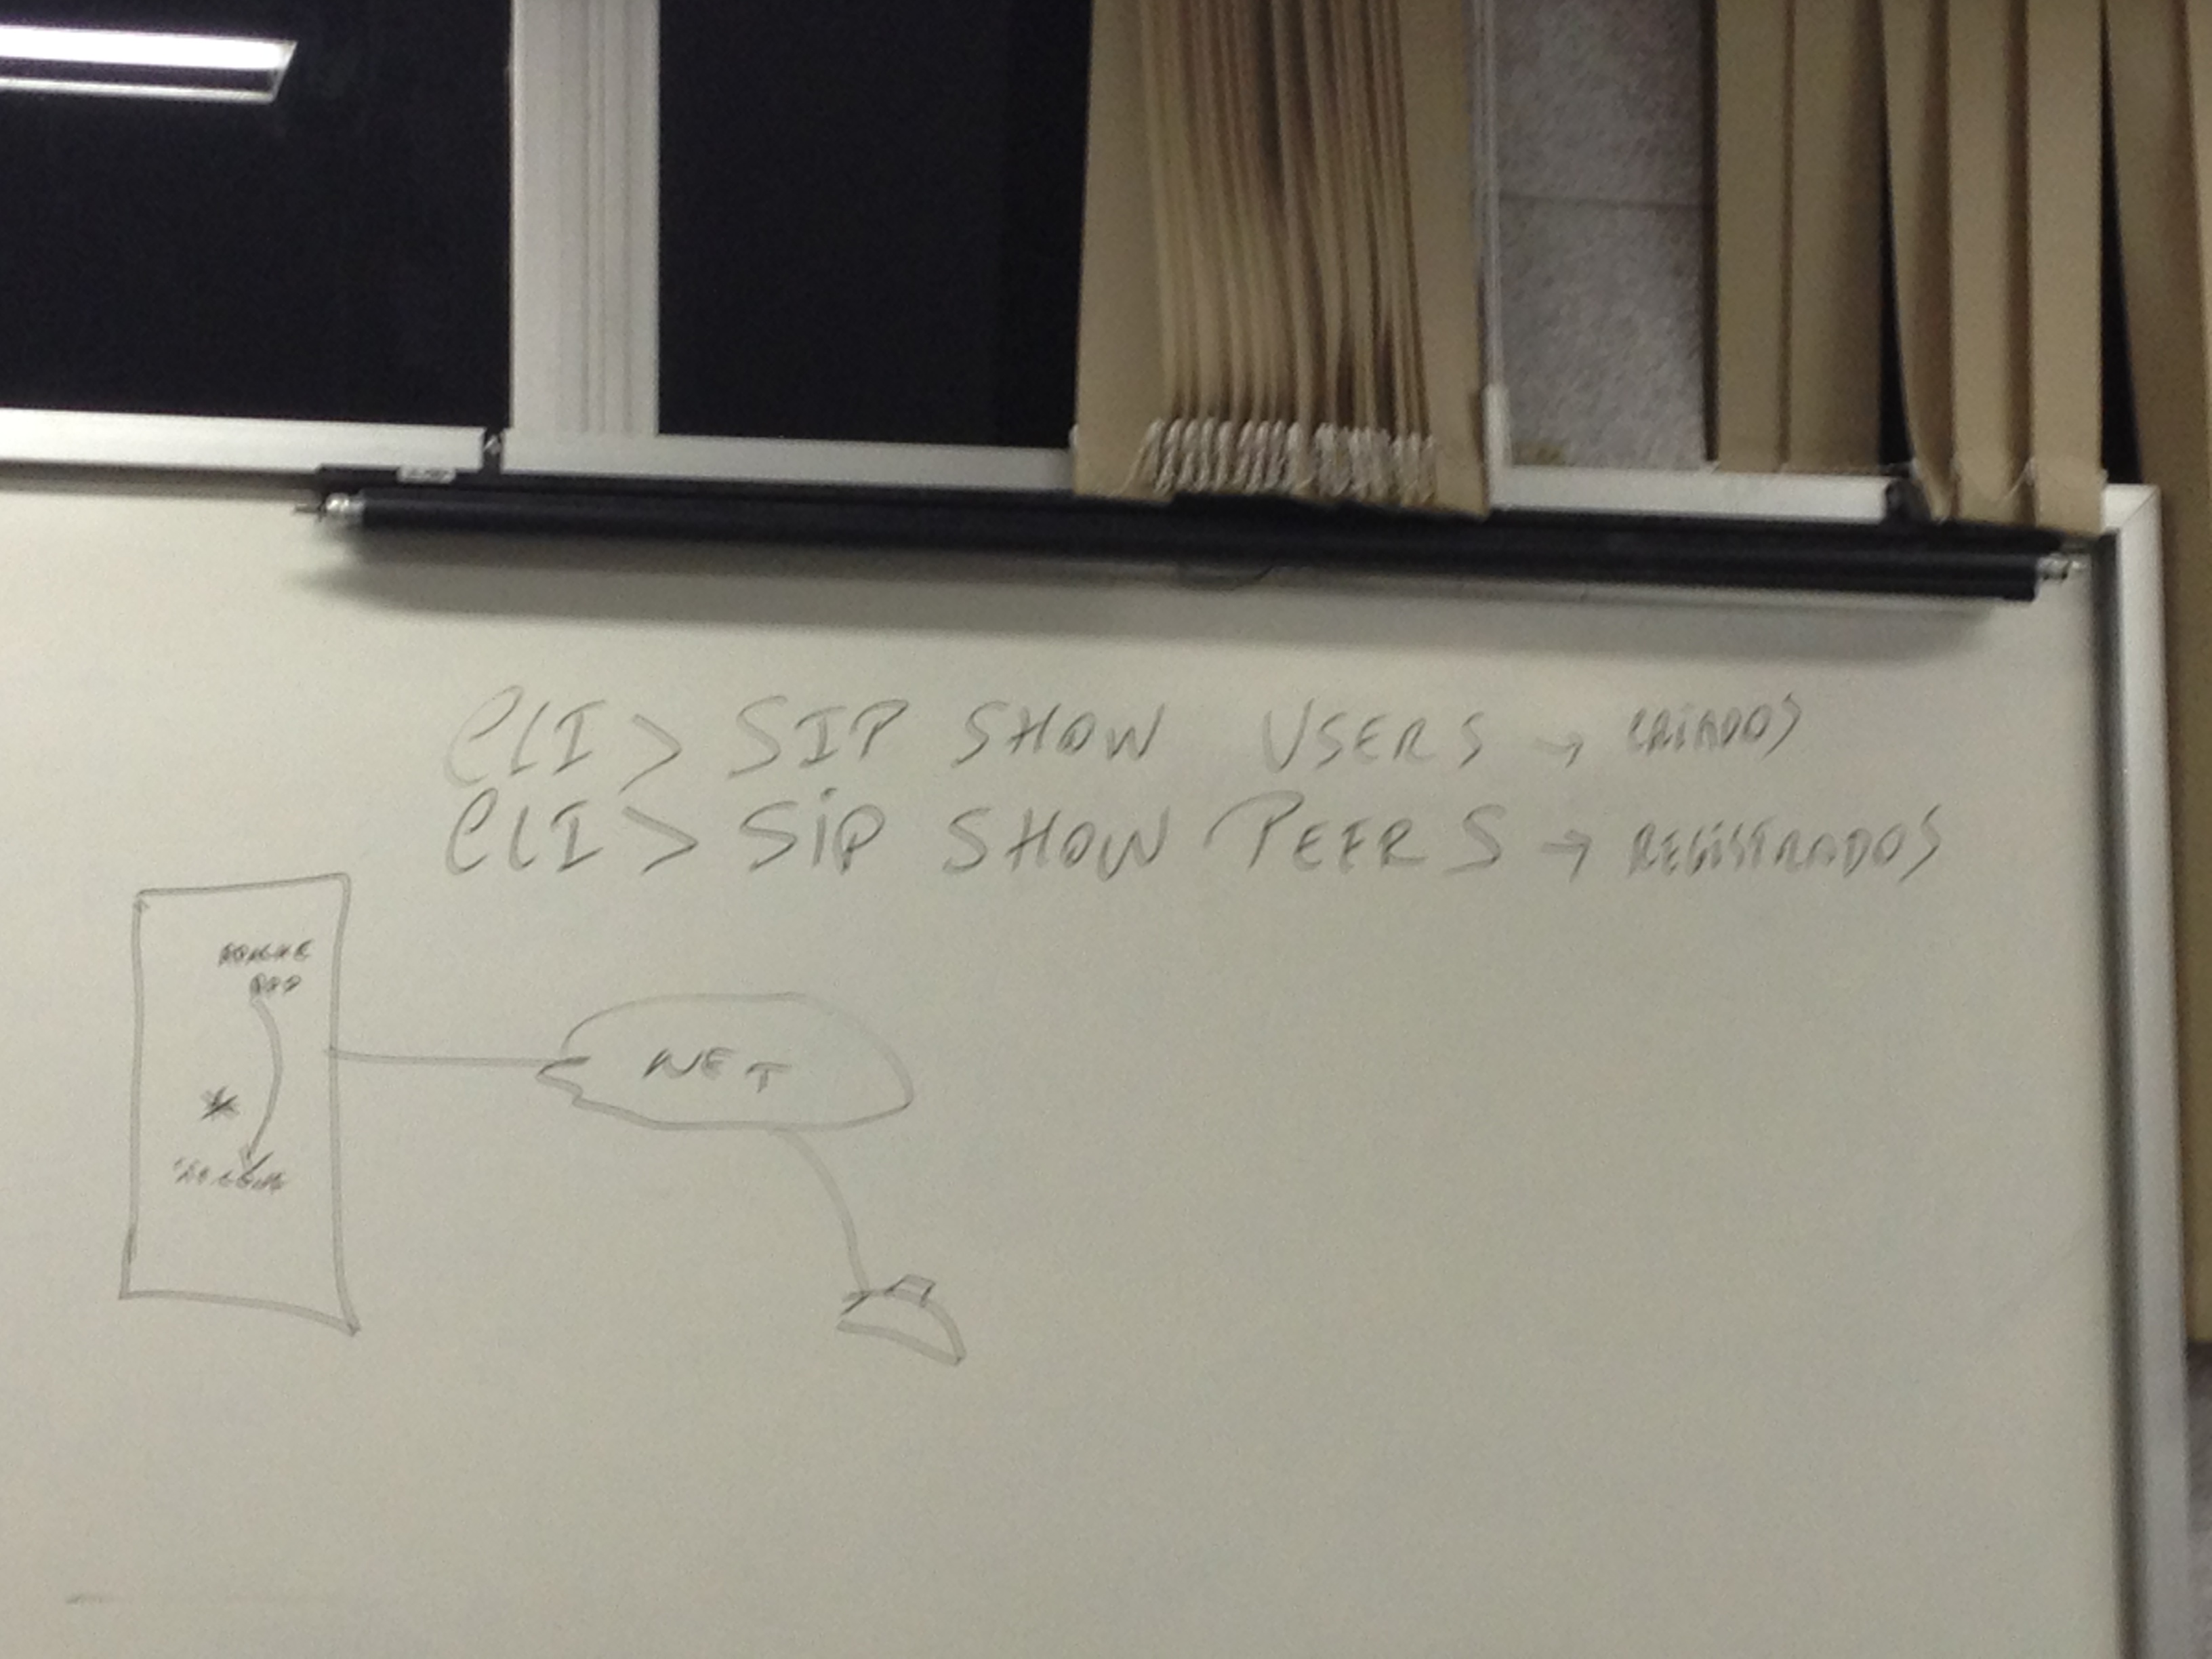 CLI> SIP SHOW USERS → CRIADOS
CLI> SiP SHOW PEERS → REGISTRADOS
APACHE
*
NET